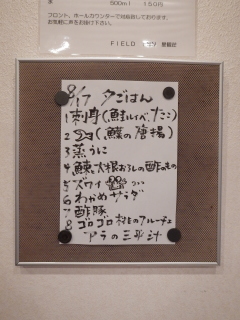 500ml 150円
フロント、ホールカウンターで対応致しております。
お気軽に声をお掛け下さい。
FIELD
8/17 夕ごはん
1 刺身(鮭ルイベ、たこ)
2 ザンギ(鰈の唐揚)
3 蒸うに
4 鰊と大根おろしの酢のもの
5 ズワイ
6 わかめサラダ
7 酢豚
8 ゴロゴロ桃のフルーチェ
アラの三平汁